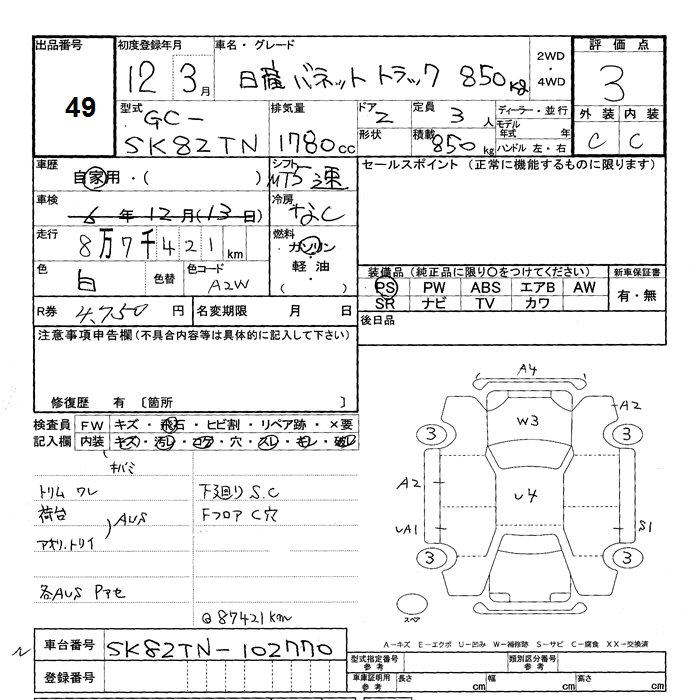 出品番号 初度登録年月 車名・グレード 評価点
49 12 3月 日産 バネット トラック 850kg 2WD・4WD 3
型式 排気量 ドア 2 定員 3人 ディーラー・並行 外装 内装
GC-
SK82TN 1780cc 形状 積載 850kg モデル年式 年 ハンドル 左・右 C C
車歴 自家用・( ) シフト MT5速 セールスポイント (正常に機能するものに限ります)
車検 6年12月(13日) 冷房 なし
走行 8万7千421km 燃料 ガソリン・軽油・( )
色 白 色替 色コード A2W
装備品 (純正品に限り○をつけてください) 新車保証書
PS PW ABS エアB AW 有・無
SR ナビ TV カワ
R券 4,750円 名変期限 月 日 後日品
注意事項申告欄(不具合内容等は具体的に記入して下さい)
修復歴 有 〔箇所 〕
検査員 FW キズ・飛石・ヒビ割・リペア跡・×要
記入欄 内装 キズ・汚レ・コゲ・穴・スレ・キレ・破レ
キバミ
トリム ワレ 下廻り S.C
荷台 AUS Fフロア C穴
アオリ.トリイ
各AUS Pアセ
@87421km
A4
W3 A2
3 3
A2 U4
UA1 S1
3 3
スペア
A-キズ E-エクボ U-凹み W-補修跡 S-サビ C-腐食 XX-交換済
車台番号 SK82TN-102770
型式指定番号 参考 類別区分番号 参考
登録番号 車庫証明用 参考 長さ cm 幅 cm 高さ cm